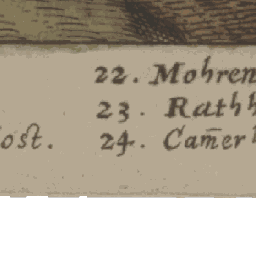 22. Mohren
23. Rath
ost. 24. Cam̄er